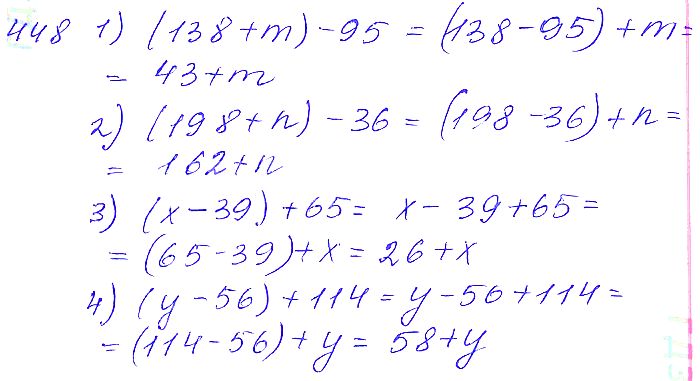 448 1) (138 + m) - 95 = (138 - 95) + m =
= 43 + m
2) (198 + n) - 36 = (198 - 36) + n =
= 162 + n
3) (x - 39) + 65 = x - 39 + 65 =
= (65 - 39) + x = 26 + x
4) (y - 56) + 114 = y - 56 + 114 =
= (114 - 56) + y = 58 + y